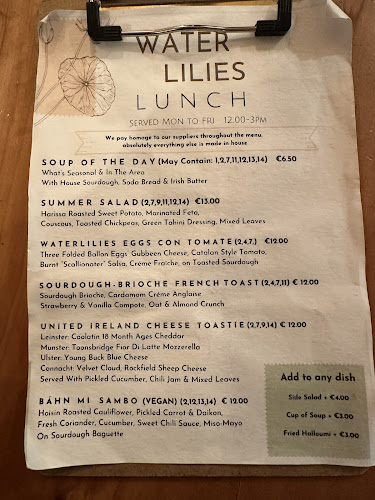 WATER
LILIES
LUNCH
SERVED MON TO FRI 12.00-3PM
We pay homage to our suppliers throughout the menu,
absolutely everything else is made in house
SOUP OF THE DAY (May Contain: 1,2,7,11,12,13,14) €6.50
What's Seasonal & In The Area
With House Sourdough, Soda Bread & Irish Butter
SUMMER SALAD (2,7,9,11,12,14) €13.00
Harissa Roasted Sweet Potato, Marinated Feta,
Couscous, Toasted Chickpeas, Green Tahini Dressing, Mixed Leaves
WATERLILIES EGGS CON TOMATE (2,4,7,) €12.00
Three Folded Ballon Eggs' Gubbeen Cheese, Catalan Style Tomato,
Burnt 'Scallionater' Salsa, Crème Fraîche, on Toasted Sourdough
SOURDOUGH-BRIOCHE FRENCH TOAST (2,4,7,11) € 12.00
Sourdough Brioche, Cardamom Crème Anglaise
Strawberry & Vanilla Compote, Oat & Almond Crunch
UNITED IRELAND CHEESE TOASTIE (2,7,9,14) € 12.00
Leinster: Coolatin 18 Month Ages Cheddar
Munster: Toonsbridge Fior Di Latte Mozzerella
Ulster: Young Buck Blue Cheese
Connacht: Velvet Cloud, Rockfield Sheep Cheese
Served With Pickled Cucumber, Chili Jam & Mixed Leaves
BÁHN MI SAMBO (VEGAN) (2,12,13,14) € 12.00
Hoisin Roasted Cauliflower, Pickled Carrot & Daikon,
Fresh Coriander, Cucumber, Sweet Chili Sauce, Miso-Mayo
On Sourdough Baguette
Add to any dish
Side Salad + €4.00
Cup of Soup + €3.00
Fried Halloumi + €3.00